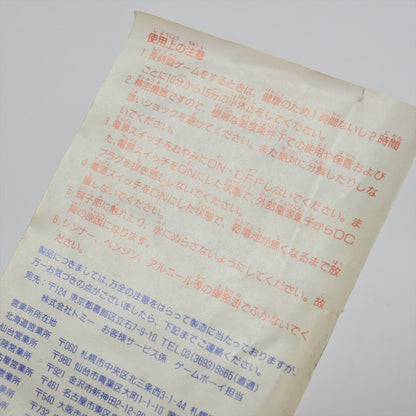 使用上の注意
1.長時間ゲームをするときは、健康のため1時間ないし2時間
ごとに10分から15分の小休止をしてください。
2.精密機器ですので、極端な温度条件下での使用や保管および
強いショックを避けてください。また絶対に分解したりしな
いでください。
3.電源スイッチをむやみにON・OFFしないでください。ま
た、電源スイッチをONにした状態で、外部電源端子からDC
プラグを抜き差ししないでください。
4.電源スイッチをONにした状態で、乾電池が無くなるまで放
置しないでください。
5.端子部に触れたり、水にぬらさないようにしてください。故
障の原因になります。
6.シンナー、ベンジン、アルコール等の揮発油でふかないでく
ださい。
製品につきましては、万全の注意をはらって製造に当たっておりますが、
万一お気づきの点がございましたら、下記までご連絡ください。
宛先:〒124 東京都葛飾区立石7-9-10 TEL03(3693)8665(直通)
株式会社トミー お客様サービス係 ゲームボーイ担当
営業所所在
北海道営業所 〒060 札幌市中央区北三条西3-1-44
仙台営業所 〒980 仙台市青葉区大町1-1-10
営業所 〒921 金沢市新神田2-12-20
営業所 〒461 名古屋市東区
営業所 〒540 大阪市